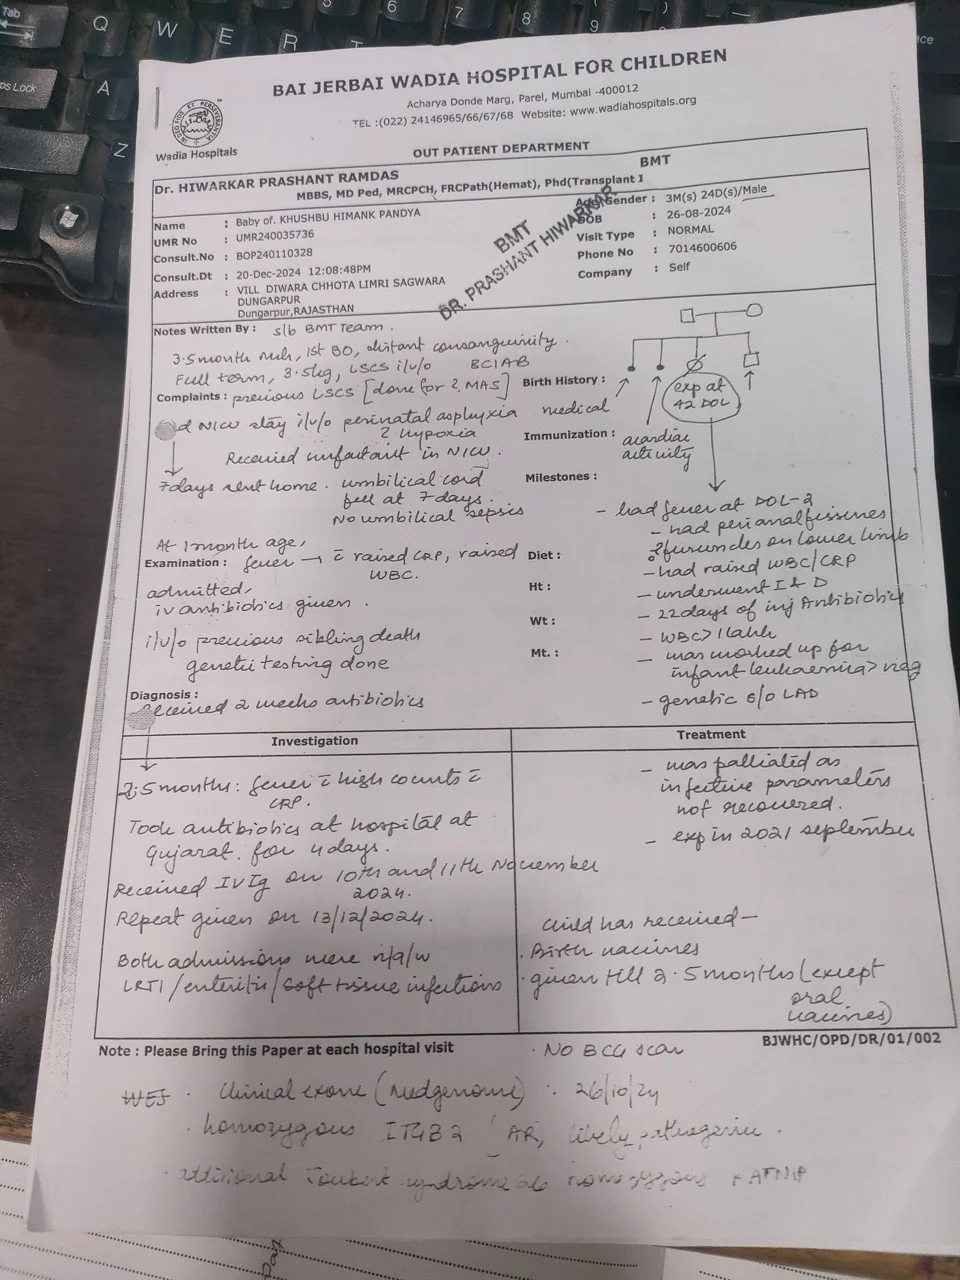 BAI JERBAI WADIA HOSPITAL FOR CHILDREN
Acharya Donde Marg, Parel, Mumbai -400012
TEL :(022) 24146965/66/67/68 Website: www.wadiahospitals.org
Wadia Hospitals
OUT PATIENT DEPARTMENT
Dr. HIWARKAR PRASHANT RAMDAS
BMT
MBBS, MD Ped, MRCPCH, FRCPath(Hemat), Phd(Transplant I
Name : Baby of. KHUSHBU HIMANK PANDYA
UMR No : UMR240035736
Consult.No : BOP240110328
Consult.Dt : 20-Dec-2024 12:08:48PM
Address : VILL DIWARA CHHOTA LIMRI SAGWARA
DUNGARPUR
Dungarpur,RAJASTHAN
Gender : 3M(s) 24D(s)/Male
DOB : 26-08-2024
Visit Type : NORMAL
Phone No : 7014600606
Company : Self
BMT
DR. PRASHANT HIWARKAR
Notes Written By : s/b BMT Team.
3.5month Mch, 1st BO, distant consanguinity.
Full term, 3.5kg, LSCS i/v/o BCIAB
Complaints : previous LSCS [done for ? MAS]
Birth History :
NICU stay i/v/o perinatal asphyxia
? hypoxia
Received surfactant in NICU.
7days sent home. umbilical cord
fell at 7days.
No umbilical sepsis
medical
Immunization : acardiac
activity
exp at
42 DOL
Milestones :
At 1 month age,
Examination : fever → c̄ raised CRP, raised
WBC.
admitted,
iv antibiotics given.
i/v/o previous sibling death
genetic testing done
Diagnosis :
Received 2 weeks antibiotics
Diet :
Ht :
Wt :
Mt. :
- had fever at DOL-2
- had perianal fissures
furuncles on lower limb
- had raised WBC/CRP
- underwent I & D
- 22days of inj Antibiotics
- WBC > 1lakh
- was worked up for
infant leukaemia > neg
- genetic s/o LAD
Investigation
Treatment
2.5months: fever c̄ high counts c̄
CRP.
Took antibiotics at hospital at
Gujarat. for 4 days.
Received IVIg on 10th and 11th November
2024.
Repeat given on 13/12/2024.
Both admissions were i/v/o
LRTI/enteritis/Soft tissue infections
- was palliated as
infective parameters
not recovered.
- exp in 2021 september
Child has received—
. Birth vaccines
. given till 2.5months (except
oral
vaccines)
Note : Please Bring this Paper at each hospital visit
. NO BCG scar
BJWHC/OPD/DR/01/002
. Clinical exome (Medgenome) : 26/10/24
. homozygous ITGB2 (AR, likely pathogenic.
. additional Joubert syndrome homozygous KATNIP